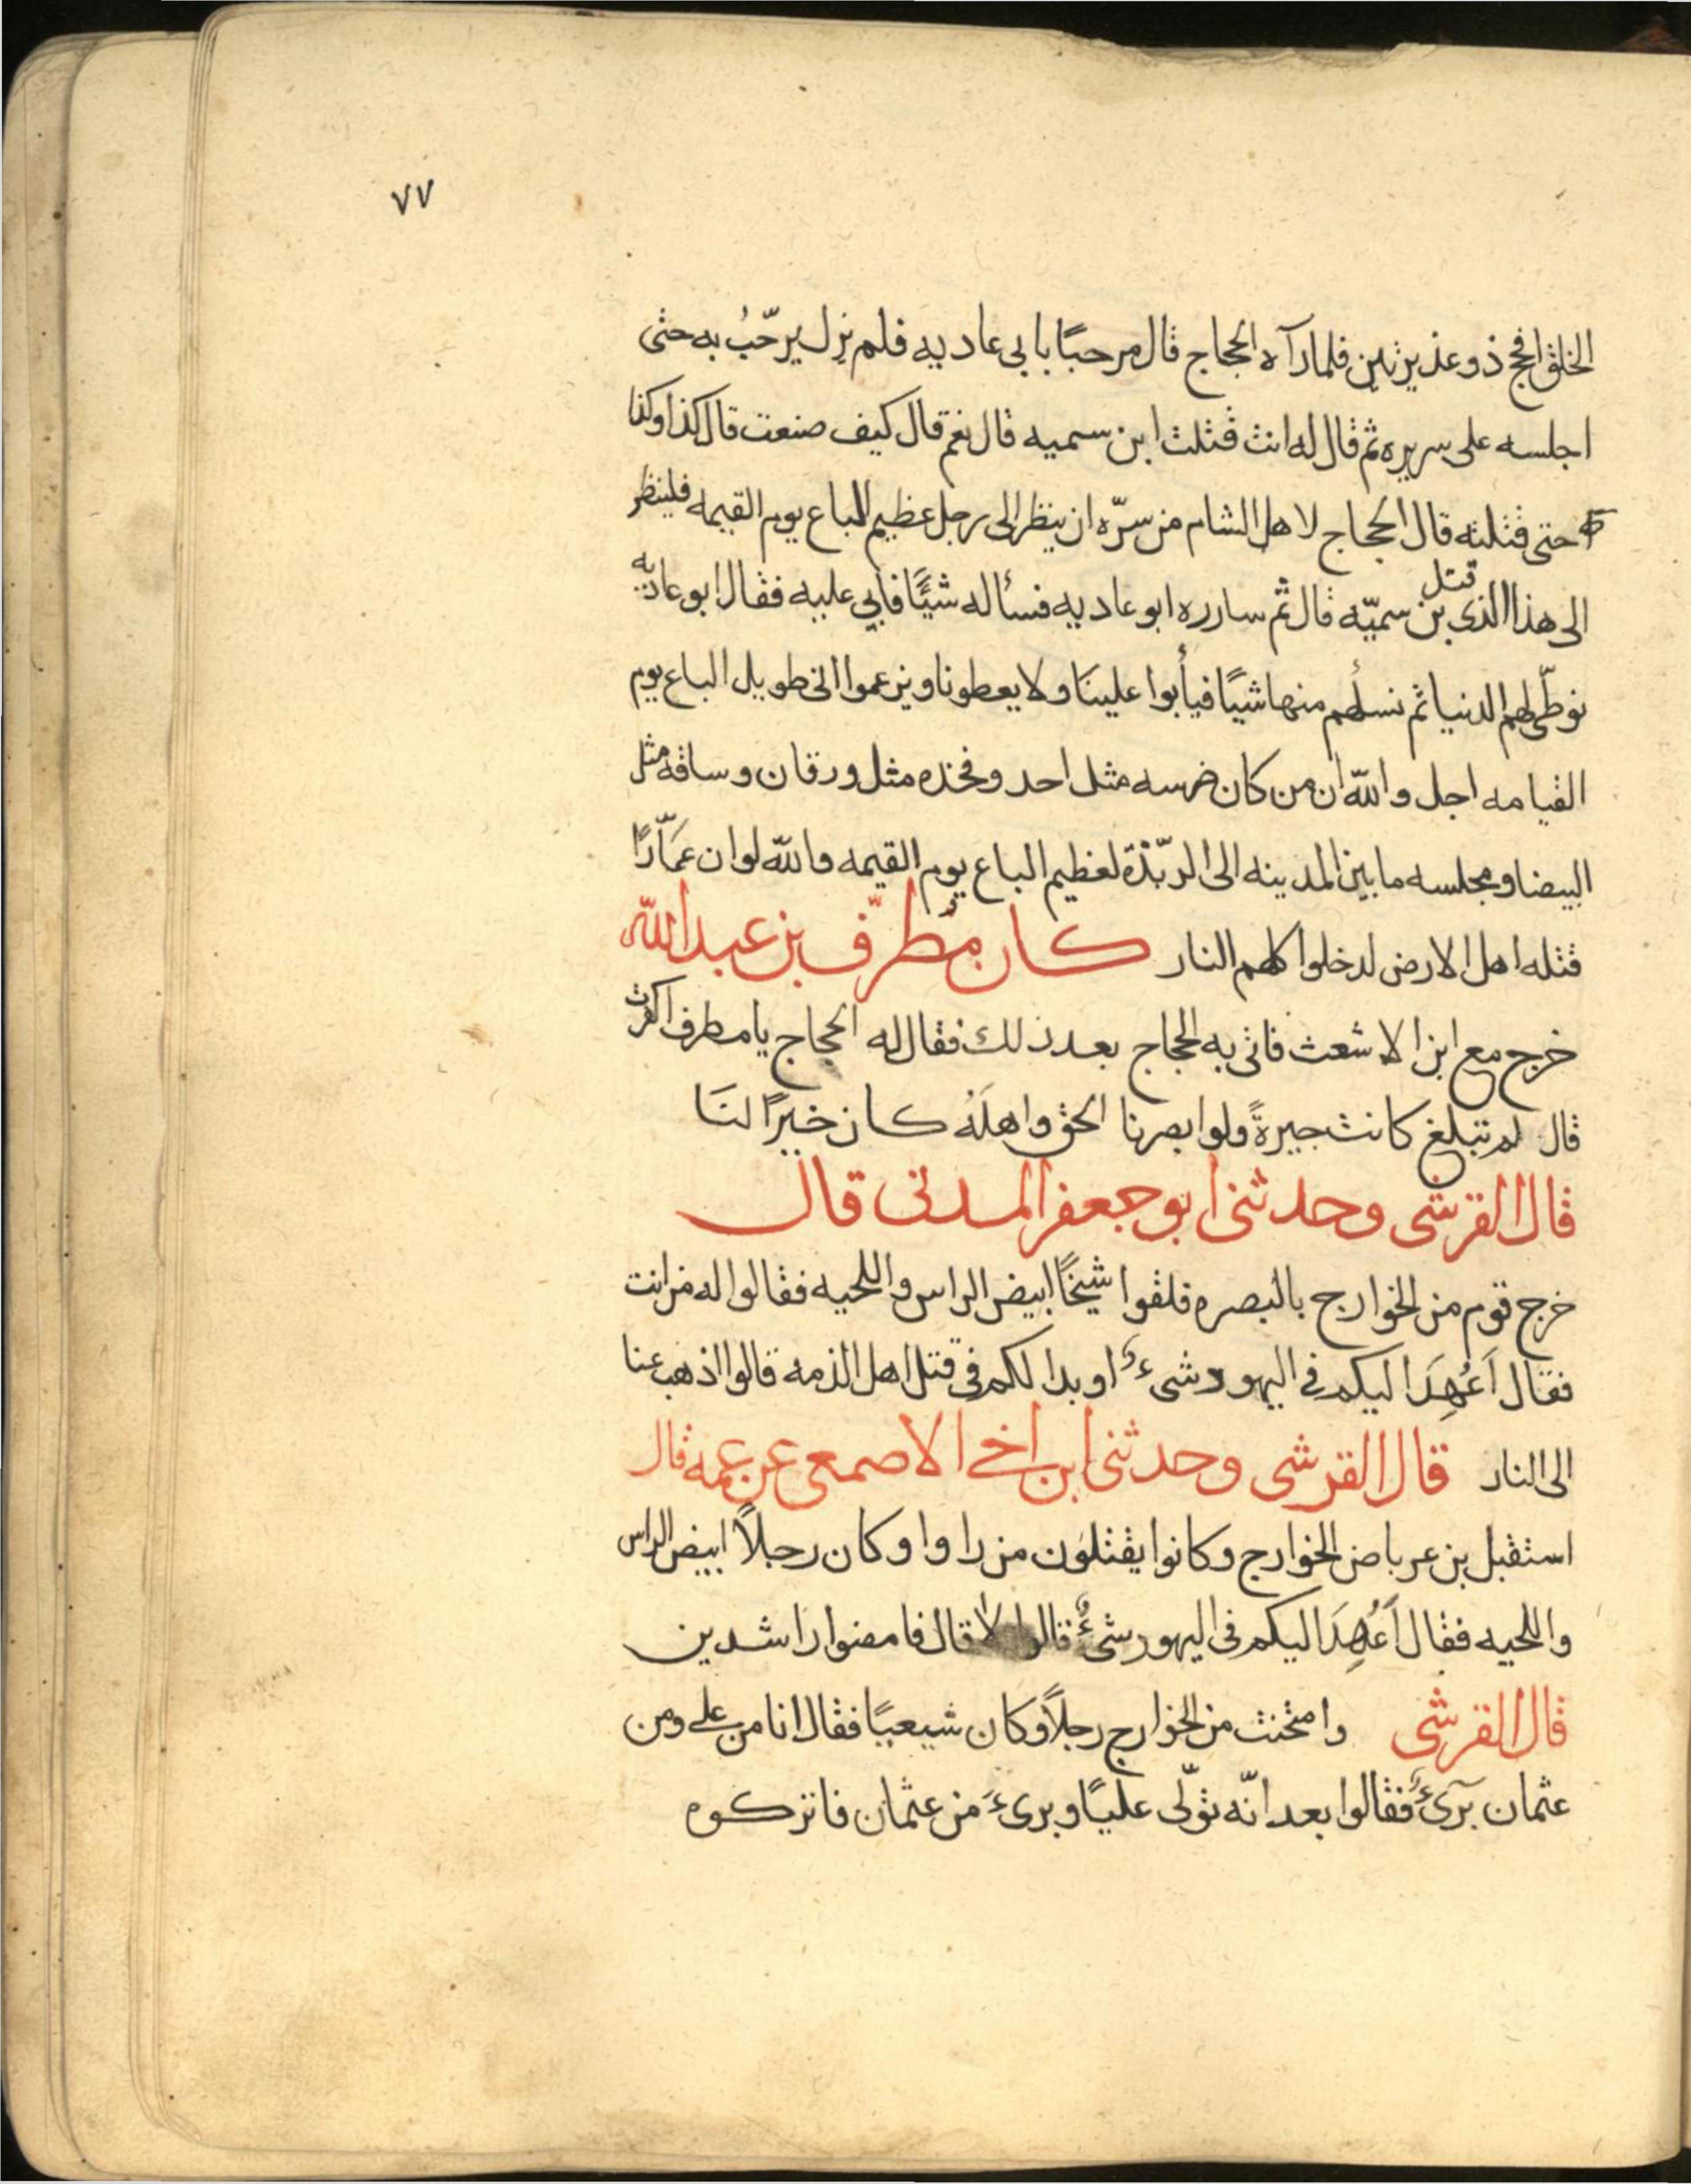 ٧٧
الخلق افحج ذو غديرتين فلما رآه الحجاج قال مرحبًا بابى عاديه فلم يزل يرحّبُ به حتى
اجلسه على سريره ثم قال له انت قتلت ابن سميه قال نعم قال كيف صنعت قال كذا وكذا
حتى قتلته قال الحجاج لاهل الشام من سرّه ان ينظر الى رجل عظيم الباع يوم القيمه فلينظر
الى هذا الذى قتل بن سميّه قال ثم سارره ابو عاديه فسأله شيًّا فابى عليه فقال ابو عاديه
نوطّى لهم الدنيا ثم نسلٔهم منها شيًا فيأبوا علينَا ولا يعطونا ويزعموا انى طويل الباع يوم
القيامه اجل والله ان من كان ضرسه مثل احد وفخذه مثل ورقان وساقه مثل
البيضا ومجلسه ما بين المدينه الى الرّبّذة لعظيم الباع يوم القيمه والله لو ان عَمّارًا
قتله اهل الارض لدخلوا كلهم النار كان مُطرّف بن عبد الله
خرج مع ابن الاشعث فاتى به الحجاج بعد ذلك فقال له الحجاج يا مطرف اكفرت
قال لم تبلغ كانت حيرةً ولو ابصرنا الحق واهلَهُ كان خيرًا لنَا
قال القرشى وحدثنى ابو جعفر المدنى قال
خرج قوم من الخوارج بالبصره فلقوا شيخًا ابيض الراس واللحيه فقالوا له من انت
فقال اَعُهِدَ اليكم فى اليهود شىءٌ او بدا لكم فى قتل اهل الذمه قالوا اذهب عنا
الى النار قال القرشى وحدثنى ابن اخى الاصمعى عن عمه قال
استقبل بن عرباض الخوارج وكانوا يقتلون من راوا وكان رجلاً ابيض الراس
واللحيه فقال اَعُهِدَ اليكم فى اليهود شىءٌ قالوا لا قال فامضوا راشدين
قال القرشى وامتحنت من الخوارج رجلاً وكان شيعيًا فقال انا من على ومن
عثمان برىءٌ فقالوا بعد انّه تولّى عليًا وبرىءَ من عثمان فاتركوه